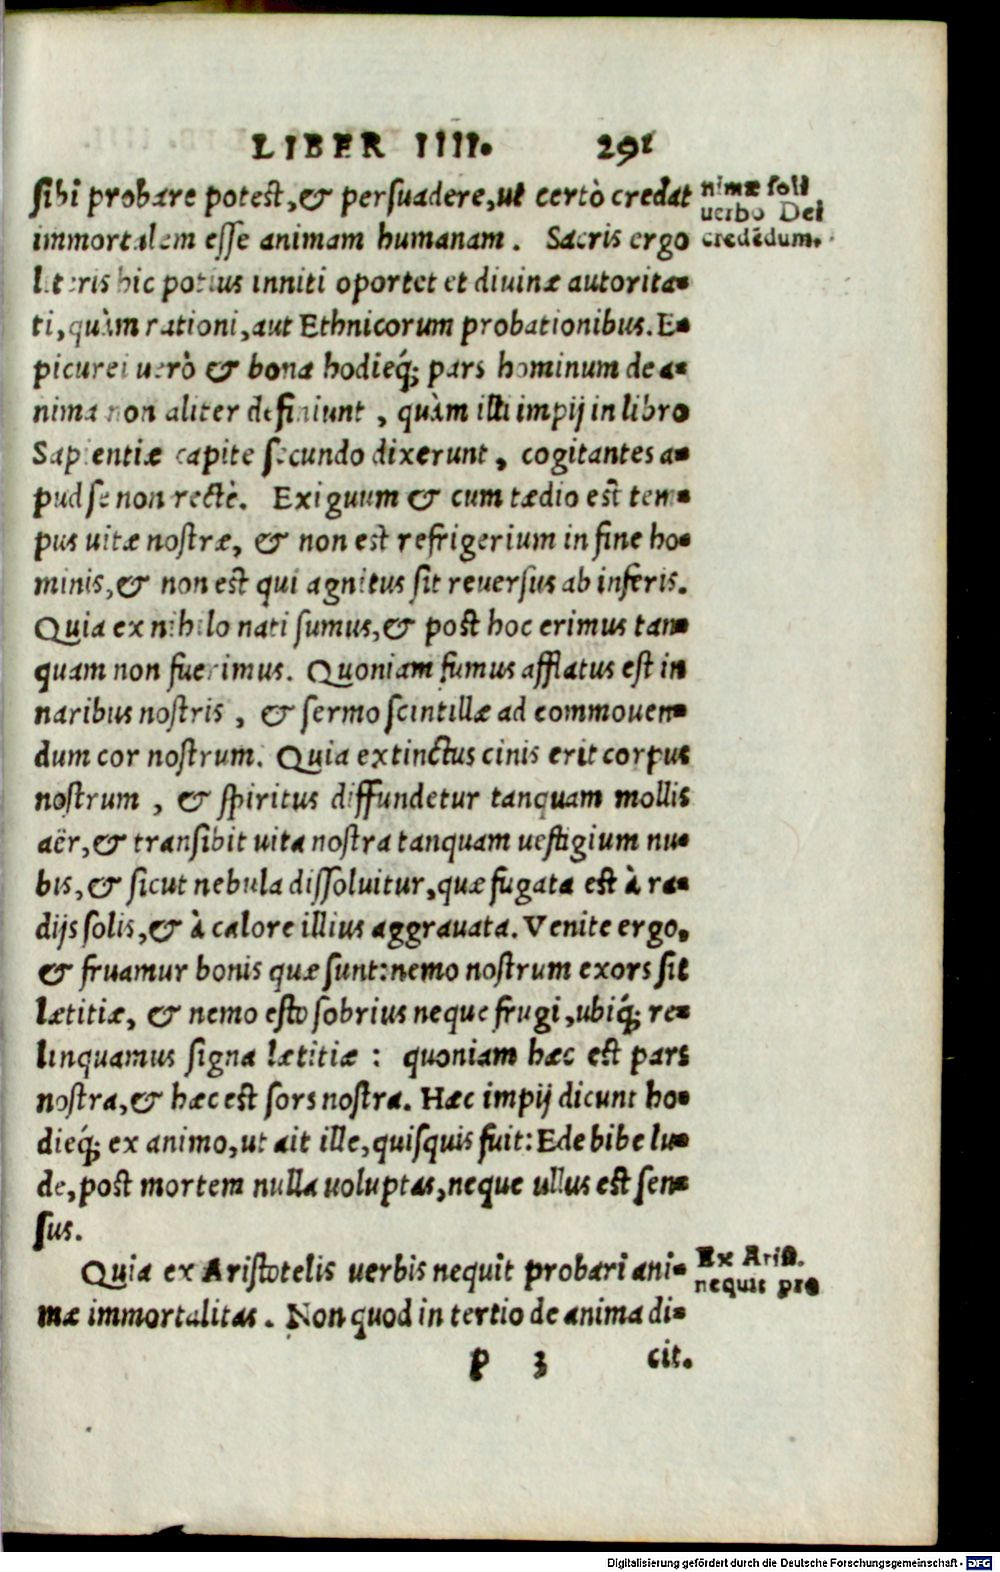 LIBER IIII. 291
sibi probare potest, & persuadere, ut certò credat
immortalem esse animam humanam. Sacris ergo
literis hic potius inniti oportet et diuinæ autorita-
ti, quàm rationi, aut Ethnicorum probationibus. E-
picurei uerò & bona hodieq́; pars hominum de a-
nima non aliter definiunt, quàm illi impij in libro
Sapientiæ capite secundo dixerunt, cogitantes a-
pud se non rectè. Exiguum & cum tædio est tem-
pus uitæ nostræ, & non est refrigerium in fine ho-
minis, & non est qui agnitus sit reuersus ab inferis.
Quia ex nihilo nati sumus, & post hoc erimus tan-
quam non fuerimus. Quoniam fumus afflatus est in
naribus nostris, & sermo scintillæ ad commouen-
dum cor nostrum. Quia extinctus cinis erit corpus
nostrum, & spiritus diffundetur tanquam mollis
aër, & transibit uita nostra tanquam uestigium nu-
bis, & sicut nebula dissoluitur, quæ fugata est à ra-
dijs solis, & à calore illius aggrauata. Venite ergo,
& fruamur bonis quæ sunt: nemo nostrum exors sit
lætitiæ, & nemo esto sobrius neque frugi, ubiq́; re-
linquamus signa lætitiæ: quoniam hæc est pars
nostra, & hæc est sors nostra. Hæc impij dicunt ho-
dieq́; ex animo, ut ait ille, quisquis fuit: Ede bibe lu-
de, post mortem nulla uoluptas, neque ullus est sen-
sus.
Quia ex Aristotelis uerbis nequit probari ani-
mæ immortalitas. Non quod in tertio de anima di-
p 3 cit.
nimæ soli
uerbo Dei
credēdum.
Ex Arist.
nequit pro
Digitalisierung gefördert durch die Deutsche Forschungsgemeinschaft - DFG